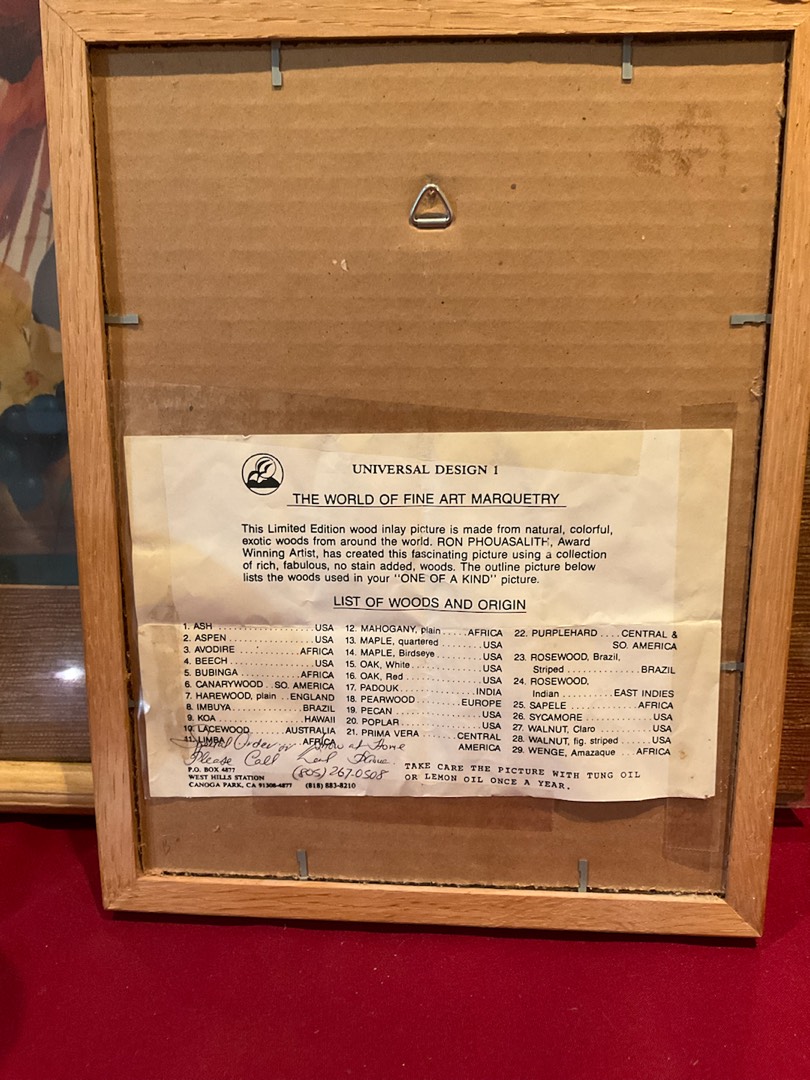 UNIVERSAL DESIGN 1
THE WORLD OF FINE ART MARQUETRY
This Limited Edition wood inlay picture is made from natural, colorful,
exotic woods from around the world. RON PHOUASALITH, Award
Winning Artist, has created this fascinating picture using a collection
of rich, fabulous, no stain added, woods. The outline picture below
lists the woods used in your "ONE OF A KIND" picture.
LIST OF WOODS AND ORIGIN
1. ASH .................... USA
2. ASPEN .................. USA
3. AVODIRE ............. AFRICA
4. BEECH .................. USA
5. BUBINGA ............. AFRICA
6. CANARYWOOD .. SO. AMERICA
7. HAREWOOD, plain .. ENGLAND
8. IMBUYA .............. BRAZIL
9. KOA ................. HAWAII
10. LACEWOOD ........ AUSTRALIA
11. LIMBA .............. AFRICA
12. MAHOGANY, plain ..... AFRICA
13. MAPLE, quartered ....... USA
14. MAPLE, Birdseye ........ USA
15. OAK, White ............. USA
16. OAK, Red ............... USA
17. PADOUK ............... INDIA
18. PEARWOOD ............ EUROPE
19. PECAN .................. USA
20. POPLAR ................. USA
21. PRIMA VERA ......... CENTRAL
AMERICA
22. PURPLEHARD .... CENTRAL &
SO. AMERICA
23. ROSEWOOD, Brazil,
Striped ............. BRAZIL
24. ROSEWOOD,
Indian .......... EAST INDIES
25. SAPELE .............. AFRICA
26. SYCAMORE ............... USA
27. WALNUT, Claro .......... USA
28. WALNUT, fig. striped ... USA
29. WENGE, Amazaque ..... AFRICA
Special Order or Show at Home
Please Call
(805) 267-0508
P.O. BOX 4877
WEST HILLS STATION
CANOGA PARK, CA 91308-4877 (818) 883-8210
TAKE CARE THE PICTURE WITH TUNG OIL
OR LEMON OIL ONCE A YEAR.